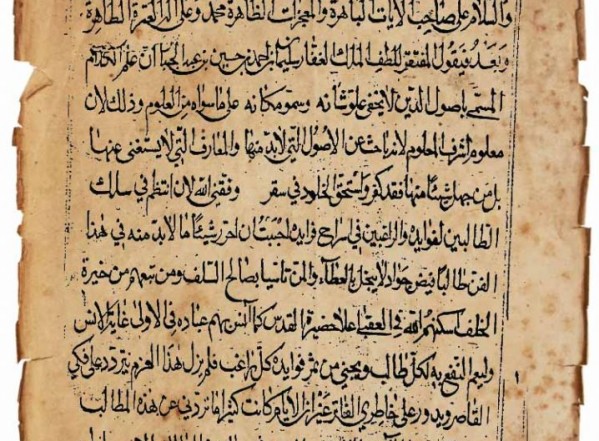 والسلام على صاحب الايات الباهرة والمعجزات الظاهرة محمد وعلى اله العترة الطاهرة
وبعد فيقول المفتقر للطف الملك الغفار سليمان احمد بن حسين بن عبد الجبار ان علم الكلام
المسمى باصول الدين لا يخفى علو شانه وسمو مكانه على ما سواه من العلوم وذلك لان
معلومه اشرف المعلوم لانه باحث عن الاصول التي لا بد منها والمعارف التي لا يستغنى عنها
بل من جهل شيئا منها فقد كفر واستحق الخلود في سقر وفقني الله لان انتظم في سلك
الطالبين لفوايده والراغبين في فوايده احببت ان احرر شيئا مما لا بد منه في هذا
الفن طالبا فيض جواد لا يبخل بالعطاء والمن تاسيا بصالح السلف ومن تبعهم من خيرة
الخلف اسكنهم الله في العقبى اعلا حضيرة القدس كما انس بهم عباده في الاولى غاية الانس
وليعم النفع به لكل طالب ويجتني من ثمر فوايده كل راغب فلم يزل هذا العزم يتردد على فكري
القاصر ويدور على خاطري الفاتر غير ان الايام كانت كثيرا ما تردني عن هذه المطالب